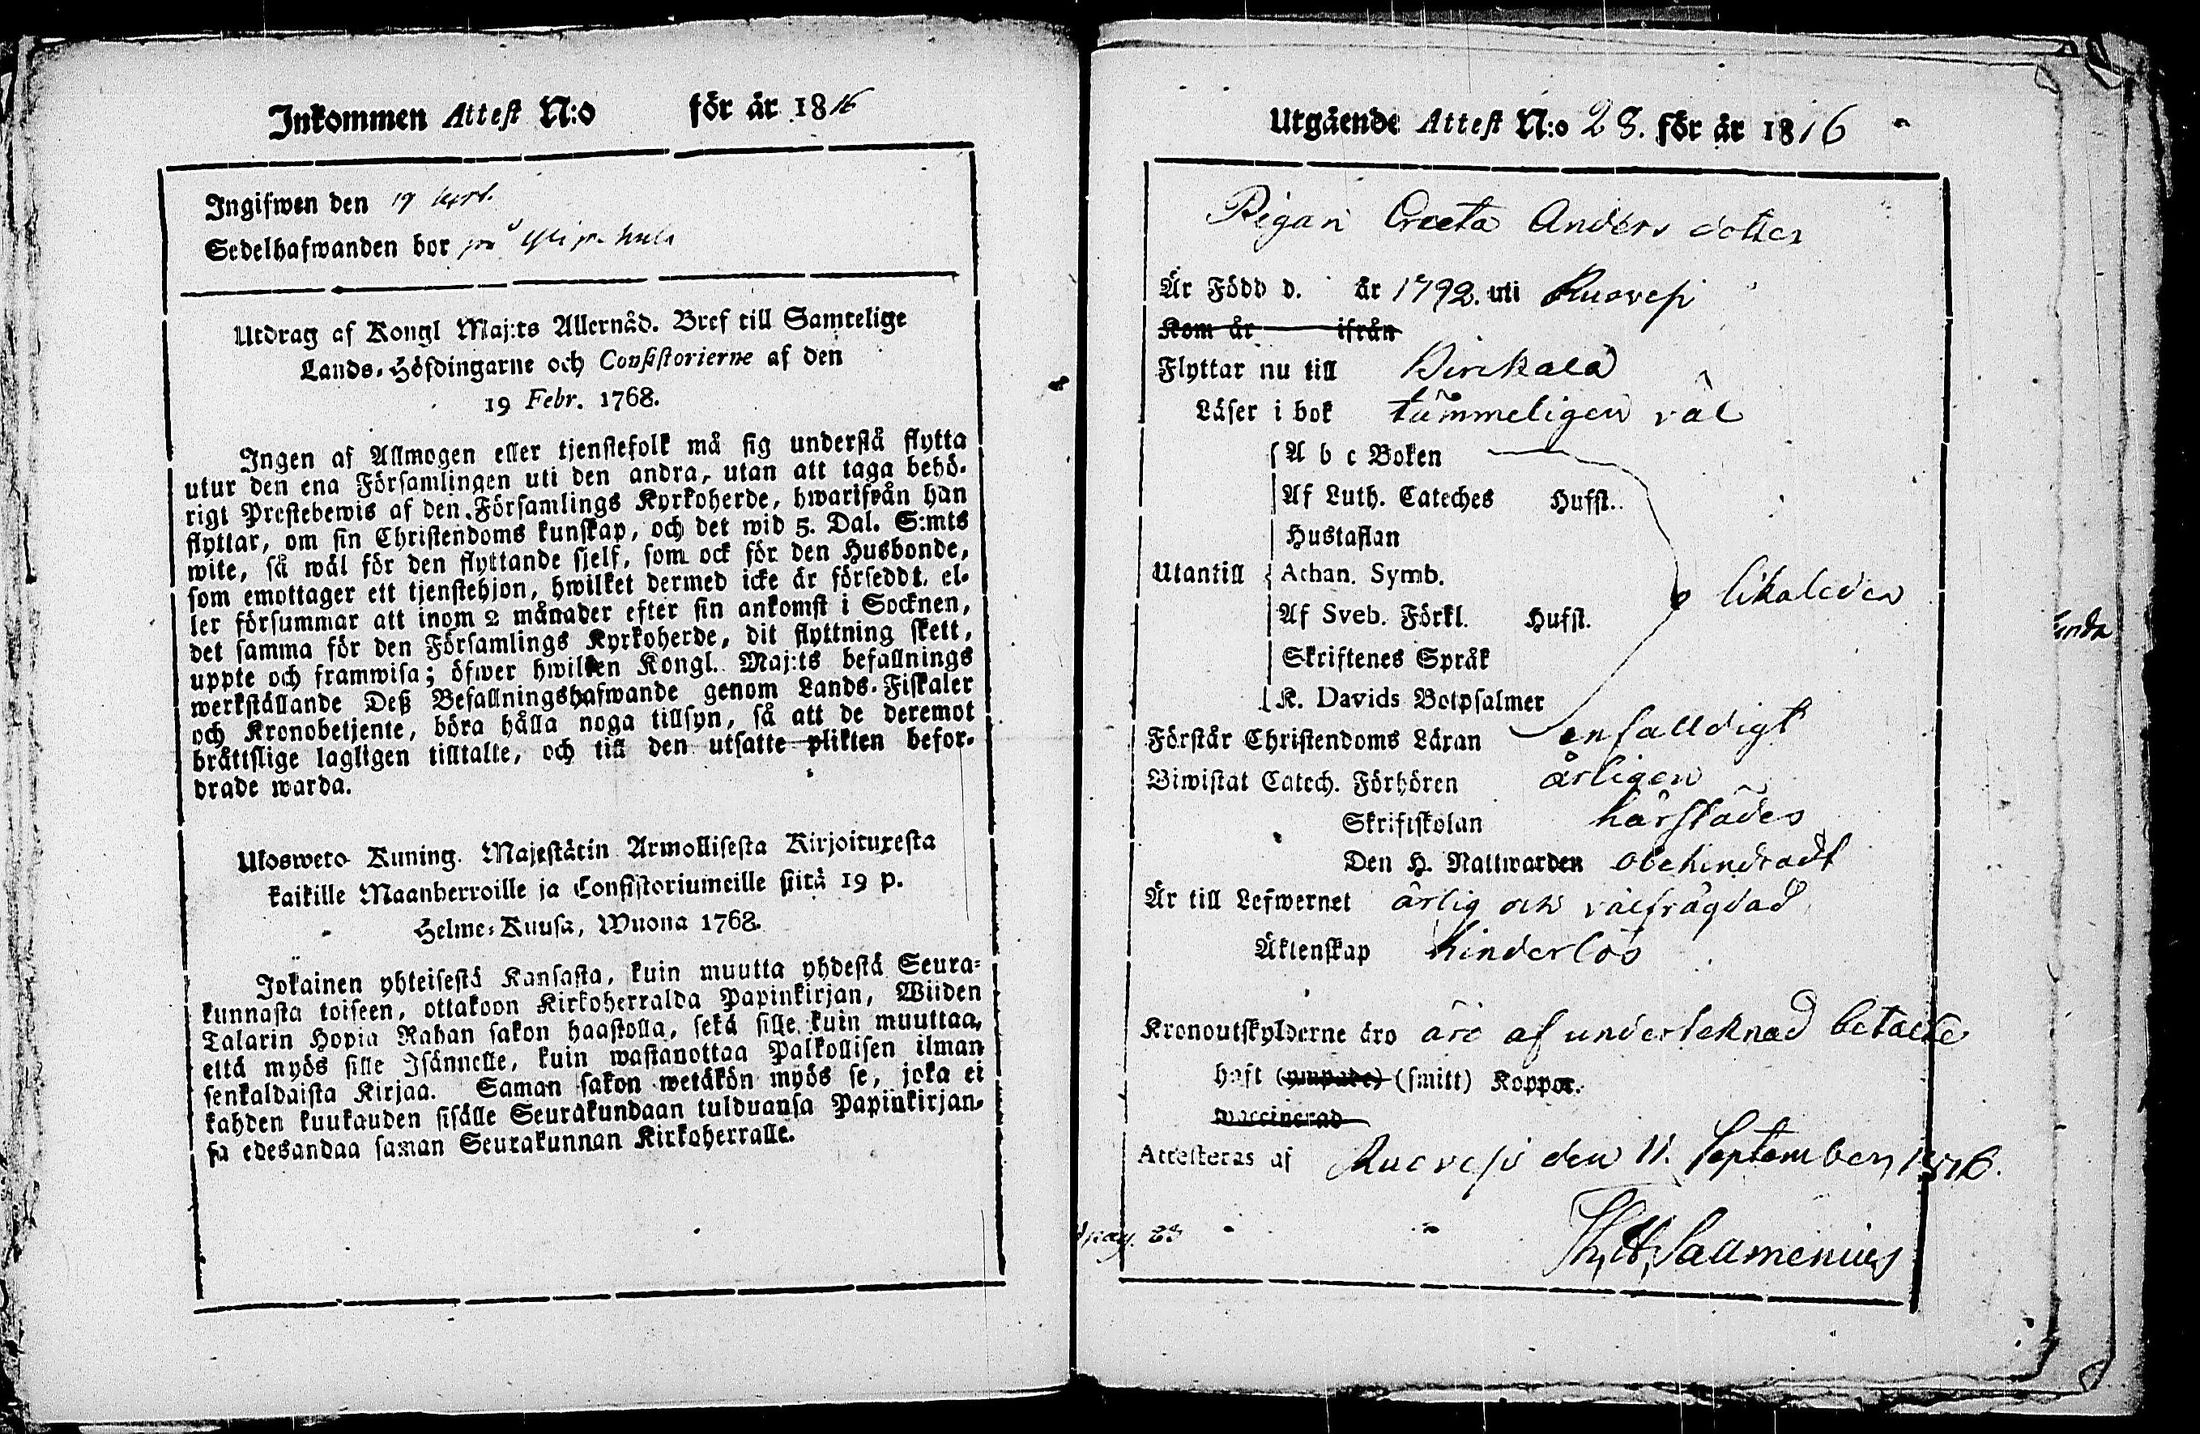 Inkommen Attest N:o för år 1816
Ingifwen den 19 Sept.
Sedelhafwanden bor på
Utdrag af Kongl Maj:ts Allernåd. Bref till Samtelige
Lands-Höfdingarne och Consistorierne af den
19 Febr. 1768.
Ingen af Allmogen eller tjenstefolk må sig understå flytta
utur den ena Församlingen uti den andra, utan att taga behö-
rigt Prestebewis af den Församlings Kyrkoherde, hwarifrån han
flyttar, om sin Christendoms kunskap, och det wid 5. Dal. S:mts
wite, så wäl för den flyttande sjelf, som ock för den Husbonde,
som emottager ett tjenstehjon, hwilket dermed icke är försedt, el-
ler försummar att inom 2 månader efter sin ankomst i Socknen,
det samma för den Församlings Kyrkoherde, dit flyttning skett,
uppte och framwisa; öfwer hwilken Kongl. Maj:ts befallnings
werkställande Deß Befallningshafwande genom Lands-Fiskaler
och Kronobetjente, böra hålla noga tillsyn, så att de deremot
bråttslige lagligen tilltalte, och till den utsatte plikten befor-
drade warda.
Ulosweto Kuning. Majestätin Armollisesta Kirjoituxesta
kaikille Maanherroille ja Consistoriumeille siitä 19 p.
Helme-Kuusa, Wuona 1768.
Jokainen yhteisestä Kansasta, kuin muutta yhdestä Seura-
kunnasta toiseen, ottakoon Kirkoherralda Papinkirjan, Wiiden
Talarin Hopia Rahan sakon haastolla, sekä sille kuin muuttaa,
että myös sille Isännelle, kuin wastanottaa Palkollisen ilman
senkaldaista Kirjaa. Saman sakon wetäkön myös se, joka ei
kahden kuukauden sisälle Seurakundaan tulduansa Papinkirjan-
sa edesandaa saman Seurakunnan Kirkoherralle.
Utgående Attest N:o 28. för år 1816
Pigan Greeta Anders dotter
Är Född d. år 1792. uti Ruovesi
Kom år ifrån
Flyttar nu till Birkala
Läser i bok tämmeligen väl
A b c Boken
Af Luth. Cateches Hufst.
Hustaflan
Utantill Athan. Symb. likaledes
Af Sveb. Förkl. Hufst.
Skriftenes Språk
K. Davids Botpsalmer
Förstår Christendoms Läran enfalldigt
Biwistat Catech. Förhören årligen
Skriftskolan härstädes
Den H. Nattwarden obehindradt
Är till Lefwernet ärlig och välfrägdad
Äktenskap hinderlös
Kronoutskylderne äro äro af underteknad betalte
haft (ympade) (smitt) Koppor.
waccinerad
Attesteras af Ruovesi den 11. September 1816.
Th. Sallmenius
pag. 23